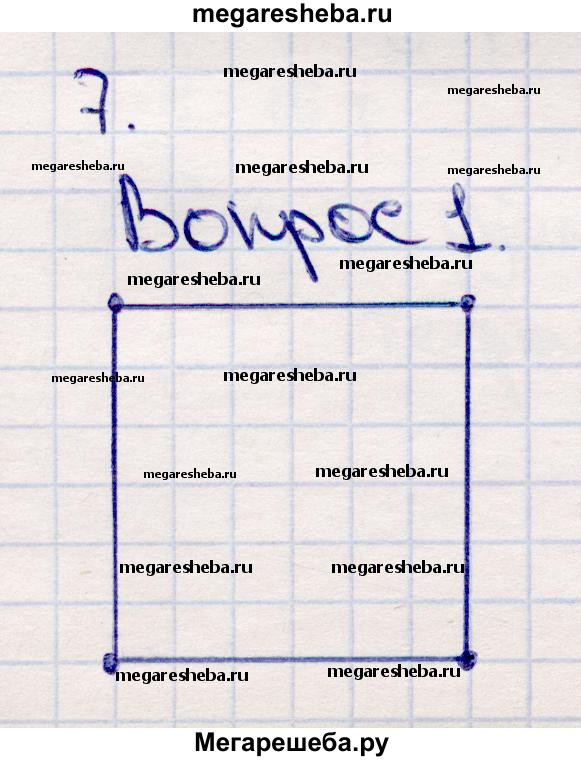 megaresheba.ru
megaresheba.ru
megaresheba.ru
7.
megaresheba.ru
megaresheba.ru
megaresheba.ru
Вопрос 1.
megaresheba.ru
megaresheba.ru
megaresheba.ru
megaresheba.ru
megaresheba.ru
megaresheba.ru
megaresheba.ru
megaresheba.ru
megaresheba.ru
megaresheba.ru
Мегарешеба.ру